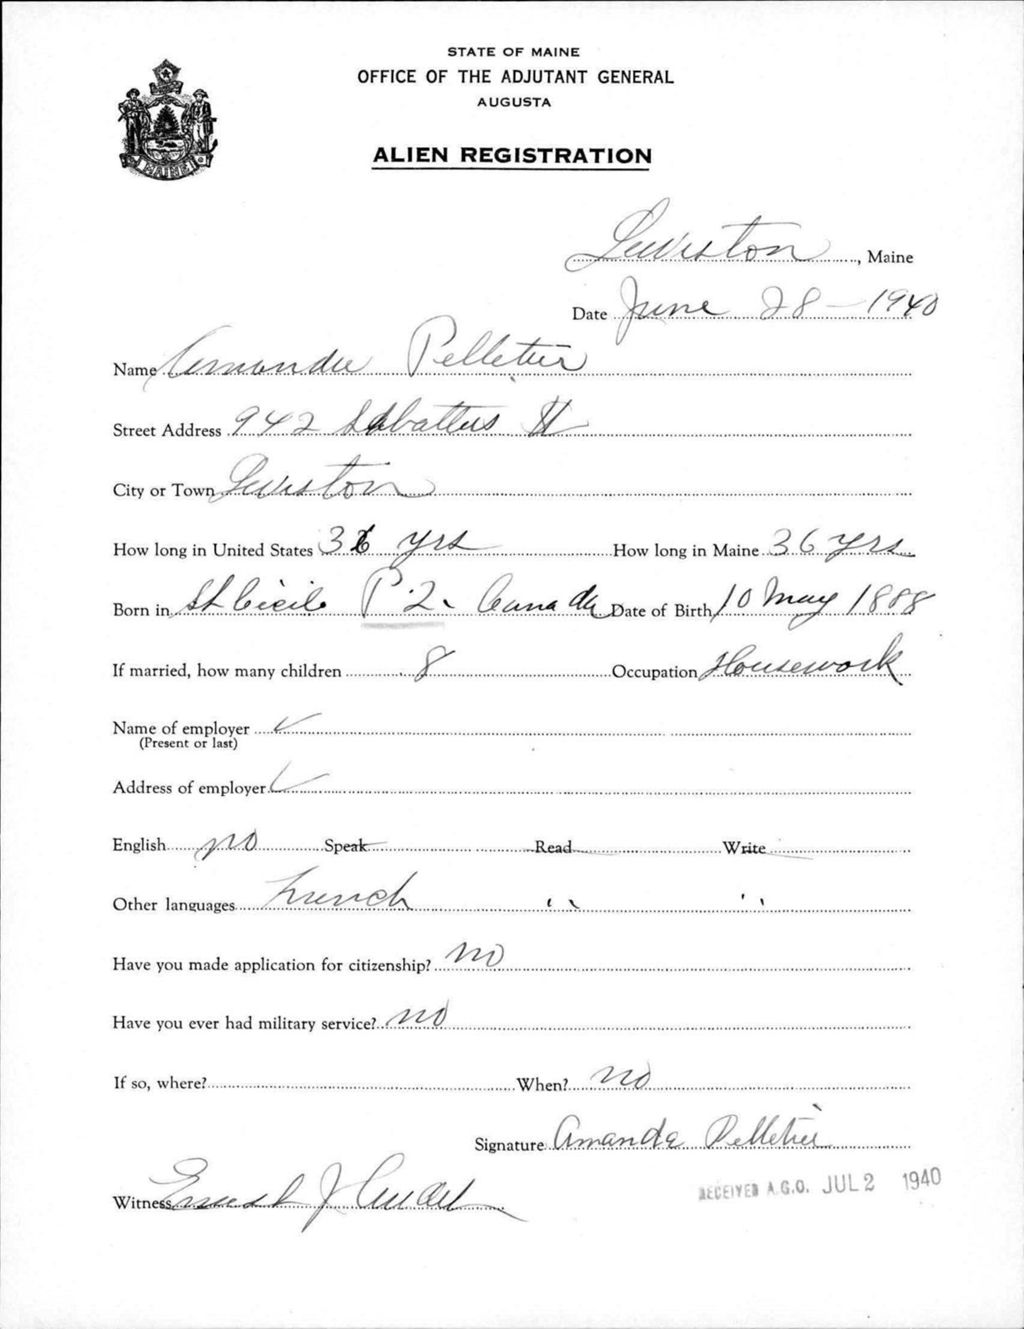 STATE OF MAINE
OFFICE OF THE ADJUTANT GENERAL
AUGUSTA
MAINE
ALIEN REGISTRATION
Lewiston, Maine
Date June 28 - 1940
Name Amanda Pelletier
Street Address 942 Sabattus St
City or Town Lewiston
How long in United States 36 yrs How long in Maine 36 yrs
Born in St Cicile P.2. Canada Date of Birth 10 May 1888
If married, how many children 8 Occupation Housework
Name of employer ✓
(Present or last)
Address of employer ✓
English no Speak Read Write
Other languages French " "
Have you made application for citizenship? no
Have you ever had military service? no
If so, where? When? no
Signature Amanda Pelletier
Witness Ernest J
RECEIVED A.G.O. JUL 2 1940